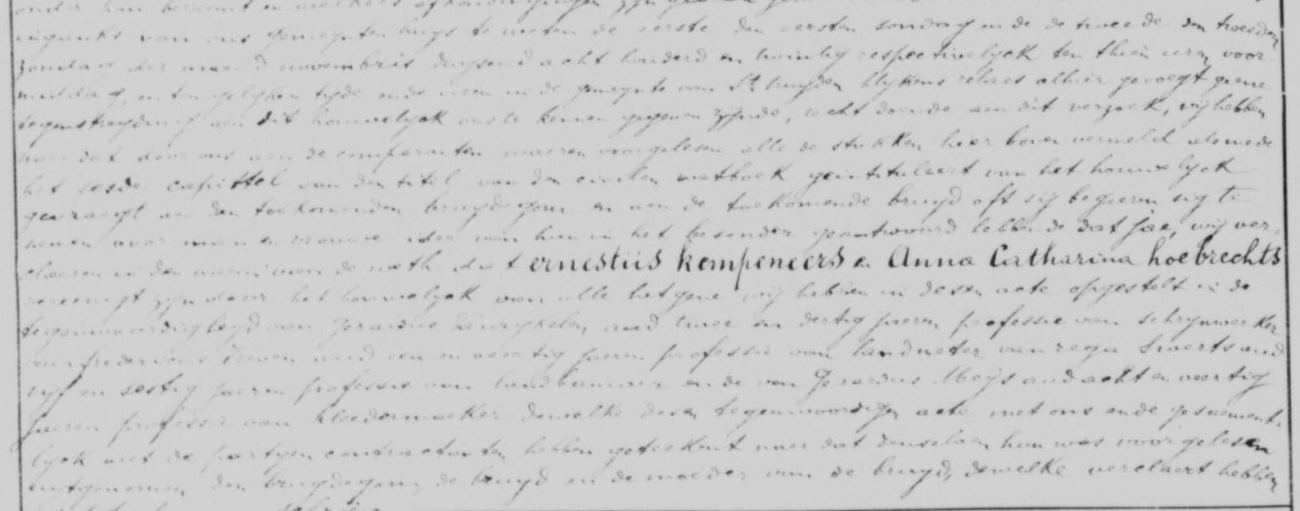 onder hun beramt en welkers afkondigingen zijn
ingancks van ons gemeynten huys te weten de eerste den eersten sondag ende de tweede den tweeden
zondag der maend novembris duysend acht honderd en twintig respectivelijck ten thien uren voor
middag, en ten gelijken tyde ende uren in de gemeynte van St truyden blykens relaes alhier gevoegt geene
tegenstreyding aen dit houwelyck ons te kennen gegeven zijnde, recht doende aen dit versoek, wij hebben
naer dat door ons aen de comparanten waeren voorgelesen alle de stukken hier boven vermeld alsmede
het sesde capittel van den titel van den civilen wetboek geintituleert van het houwelyck
gevraegt aen den toekomenden bruydegom en aen de toekomende bruyd oft sij begeeren sig te
nemen voor man en vrouwe ider van hun in het besonder geantwoord hebbende dat jae, wij ver-
claeren in den naem van de weth dat ernestüs kempeneers en Anna Catharina hoebrechts
vereenigt zijn door het houwelyck van alle het gene wij hebben in desen acte opgestelt in de
tegenwoordigheyd van Gerardus oud twee en dertig jaeren professie van schrijnwerker
van fredericus oud een en veertig jaeren professie van landmeter van regu Swerts oud
vijf en sestig jaeren professie van landbouwer ende van Gerardus Meijs oud acht en veertig
jaeren professie van kleedermaeker dewelke desen tegenwoordigen acte met ons ende gesaement-
lyck met de partyen contractanten hebben geteekent naer dat denselven hun was voorgelesen
uytgenomen den bruydegom, de bruyd en de moeder van de bruyd, dewelke verclaert hebben